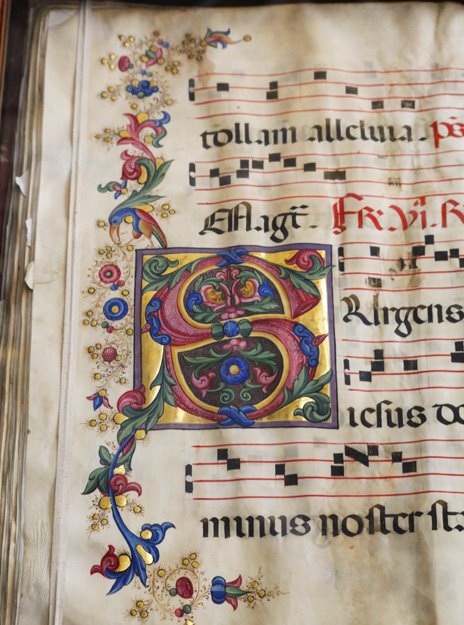 tollam alleluia. ps
Magt. FR. VI. R
SUrgens
iesus do
minus noster st